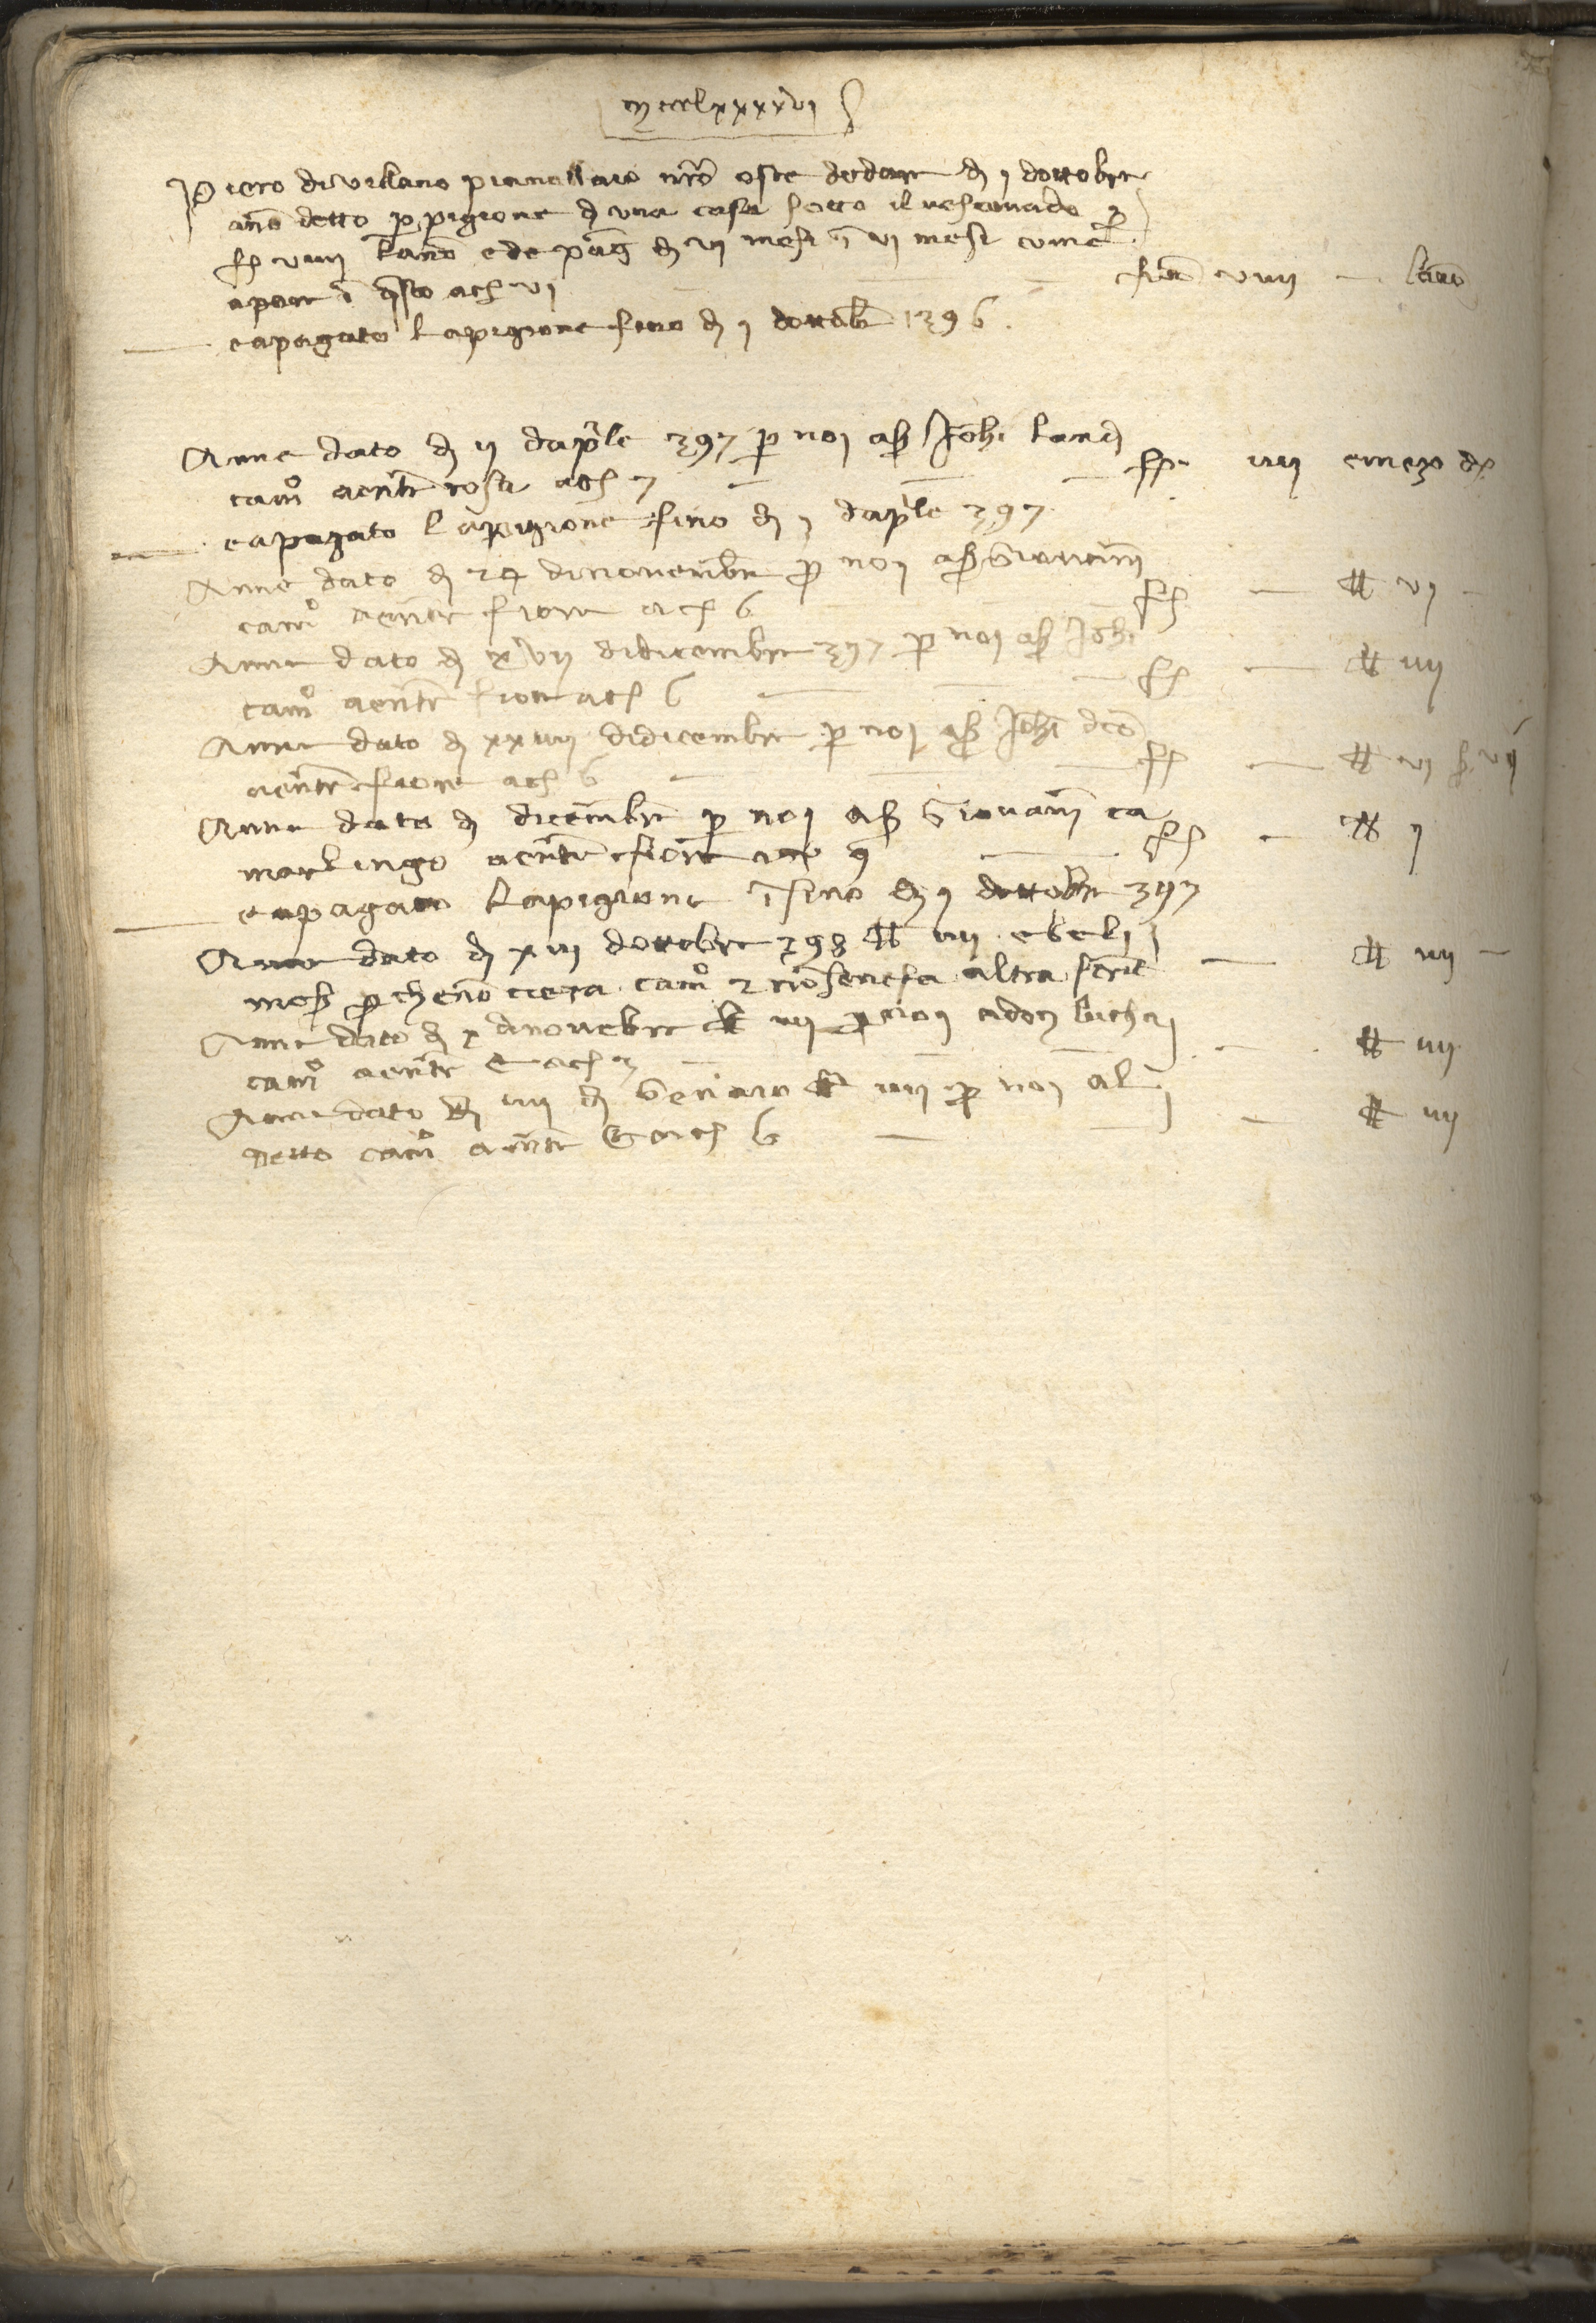 mccclxxxxvi
Piero di villano pianellaio nrō oste dedare dj j dottobre
ano detto p pigione dj una casa sotto il vescovado p
ff viiij lano e de pag dj vj mesi i vj mesi come
apare i qsto ac vj fior viiij — lano
e apagato lapigione fino dj j dottob 1396.
Anne dato dj ij daprile 397 p noj as Johi
camo aentr cosi ac 7 — ff iiij emezo
e apagato lapigione fino dj j daprile 397
Anne dato dj 24 dinovembr p noj as Giovanni
camo aentr fiore ac 6 ff — ℔ vj —
Anne dato dj xvij didicembre 397 p noj as Johi
camo aentr fiore ac 6 — ff — ℔ iiij
Anne dato dj xxiiij didicembre p noj as Johi dco
aentr fiore ac 6 — ff — ℔ vj s vij
Anne dato dj dicembre p noj as Giovani ca
marlingo aentr fiore ff — ℔ j
e apagato lapigione i fino dj j dottobre 397
Anne dato dj xiij dottobre 398 ℔ iiij ebeli
mes p cheno ciera camo altra scrit — ℔ iiij —
Anne dato dj x dinovebre ℔ iiij p noj adon
camo aentr E ac — ℔ iiij
Anne dato dj iiij dj Genaio ℔ iiij p noj al
detto camo aentr E ac 6 — ℔ iiij